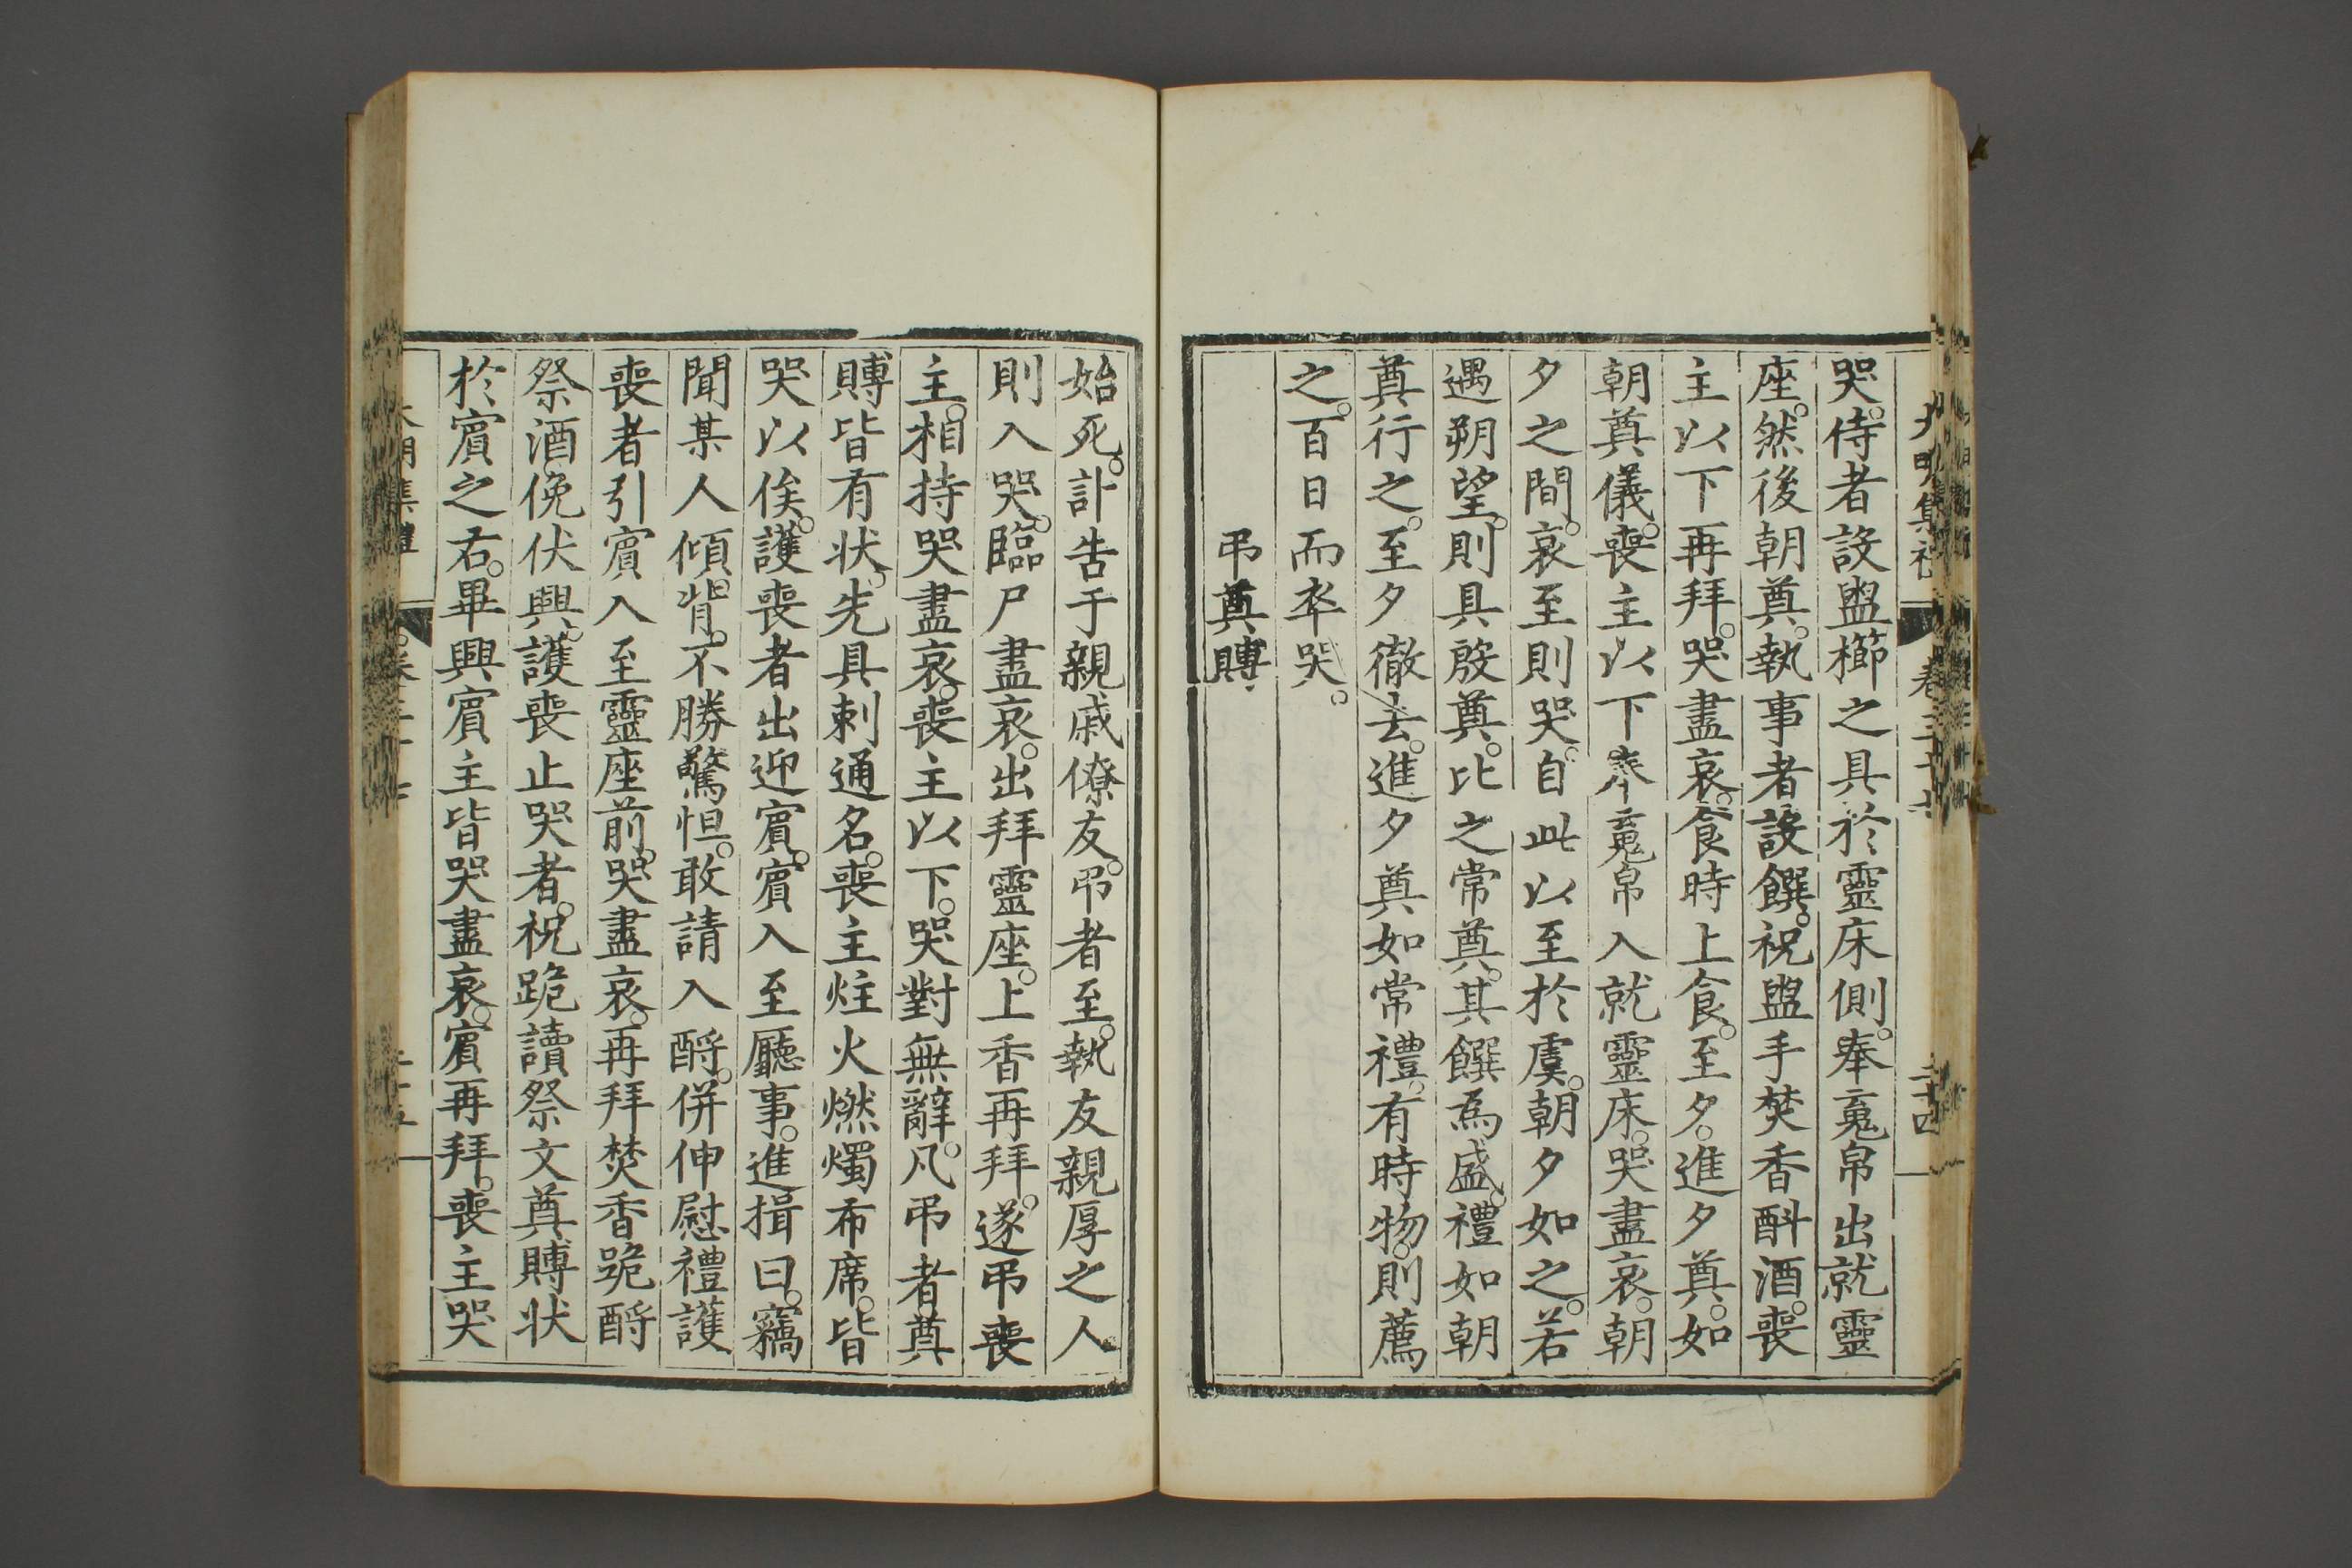 哭。侍者設盥櫛之具於靈床側。奉䰟帛出就靈
座。然後朝奠。執事者設饌。祝盥手焚香斟酒。喪
主以下再拜。哭盡哀。食時上食。至夕。進夕奠。如
朝奠儀。喪主以下奉䰟帛入就靈床。哭盡哀。朝
夕之間。哀至則哭。自此以至於虞。朝夕如之。若
遇朔望。則具殷奠。比之常奠。其饌為盛。禮如朝
奠行之。至夕徹去。進夕奠如常禮。有時物。則薦
之。百日而卒哭。
弔奠賻
始死。訃告于親戚僚友。弔者至。執友親厚之人
則入哭。臨尸盡哀。出拜靈座。上香再拜。遂弔喪
主。相持哭盡哀。喪主以下。哭對無辭。凡弔者奠
賻皆有狀。先具刺通名。喪主炷火燃燭布席。皆
哭以俟。護喪者出迎賓。賓入至廳事。進揖曰。竊
聞某人傾背。不勝驚怛。敢請入酹。併伸慰禮護
喪者引賓入至靈座前。哭盡哀。再拜焚香跪酹
祭酒俛伏興。護喪止哭者。祝跪讀祭文奠賻狀
於賓之右。畢興賓主皆哭盡哀。賓再拜。喪主哭